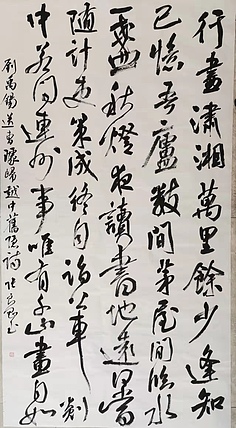 行盡瀟湘萬里餘少逢知
己憶吾廬數間茅屋間臨水
一盞秋燈夜讀書地遠何當
隨計吏策成終自詣公車剡
中若問連州事唯有千山畫不如
劉禹錫送曹璩歸越中舊隱詩